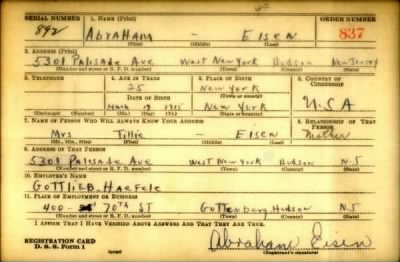 SERIAL NUMBER 1. NAME (Print) ORDER NUMBER
892 ABRAHAM – EISEN 837
(First) (Middle) (Last)
2. ADDRESS (Print)
5301 Palisade Ave West New York Hudson New Jersey
(Number and street or R. F. D. number) (Town) (County) (State)
3. TELEPHONE 4. AGE IN YEARS 5. PLACE OF BIRTH 6. COUNTRY OF CITIZENSHIP
25 New York
DATE OF BIRTH (Town or county)
March 19 1915 New York U.S.A
(Exchange) (Number) (Mo.) (Day) (Yr.) (State or country)
7. NAME OF PERSON WHO WILL ALWAYS KNOW YOUR ADDRESS 8. RELATIONSHIP OF THAT PERSON
Mrs Tillie – EISEN Mother
(Mr., Mrs., Miss) (First) (Middle) (Last)
9. ADDRESS OF THAT PERSON
5301 Palisade Ave West New York Hudson N-J
(Number and street or R. F. D. number) (Town) (County) (State)
10. EMPLOYER'S NAME
Gottlieb Haefele
11. PLACE OF EMPLOYMENT OR BUSINESS
400 - 70TH ST Guttenberg Hudson N-J
(Number and street or R. F. D. number) (Town) (County) (State)
I AFFIRM THAT I HAVE VERIFIED ABOVE ANSWERS AND THAT THEY ARE TRUE.
REGISTRATION CARD Abraham Eisen
D. S. S. Form 1 (over) (Registrant's signature)